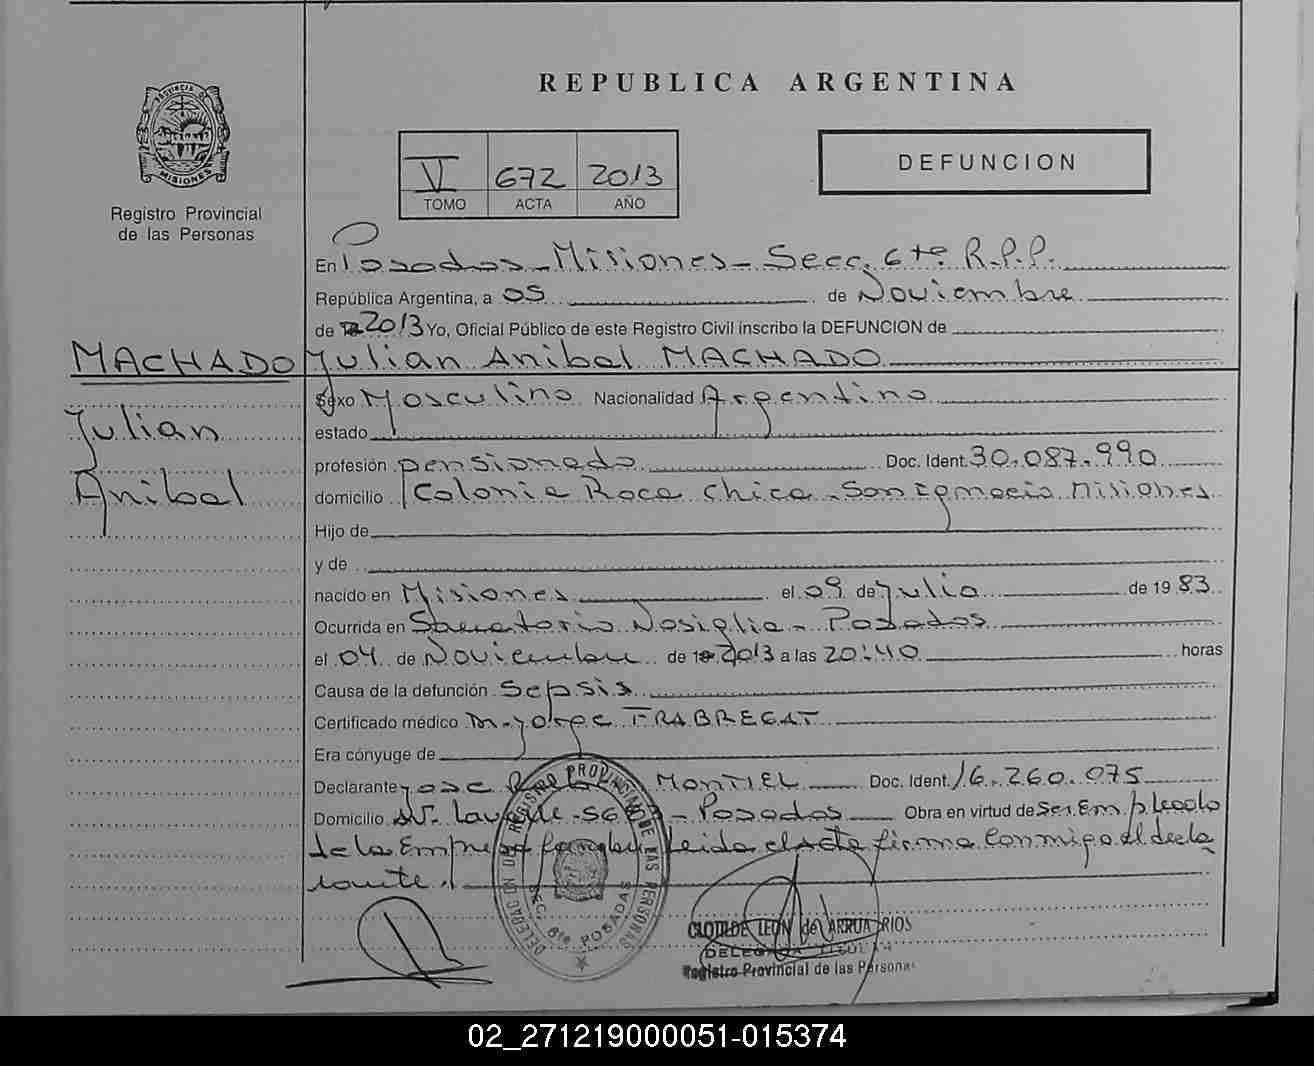 REPUBLICA ARGENTINA
PROVINCIA DE
MISIONES
Registro Provincial
de las Personas
V 672 2013
TOMO ACTA AÑO
DEFUNCION
En Posadas - Misiones - Secc. 6ta. R.P.P.
República Argentina, a 05 de Noviembre
de 2013 Yo, Oficial Público de este Registro Civil inscribo la DEFUNCION de
MACHADO Julian Anibal MACHADO
Sexo Masculino Nacionalidad Argentino
Julian
estado
profesión pensionado Doc. Ident. 30.087.990
Anibal
domicilio Colonia Roca Chica - San Ignacio Misiones
Hijo de
y de
nacido en Misiones el 09 de Julio de 1983
Ocurrida en Sanatorio Nosiglia - Posadas
el 04 de Noviembre de 2013 a las 20:40 horas
Causa de la defunción Sepsis
Certificado médico M. Jorge FRABREGAT
Era cónyuge de
Declarante Jose MONTIEL Doc. Ident. 16.260.075
Domicilio Av. - Posadas Obra en virtud de Ser Empleado
de la Empresa leida el acta firma conmigo el decla
rante.
DELEGACION DEL REGISTRO PROVINCIAL DE LAS PERSONAS
SEC. 6ta. POSADAS
CLOTILDE LEON de ARRUA RIOS
DELEGADA TITULAR
Registro Provincial de las Personas
02_271219000051-015374